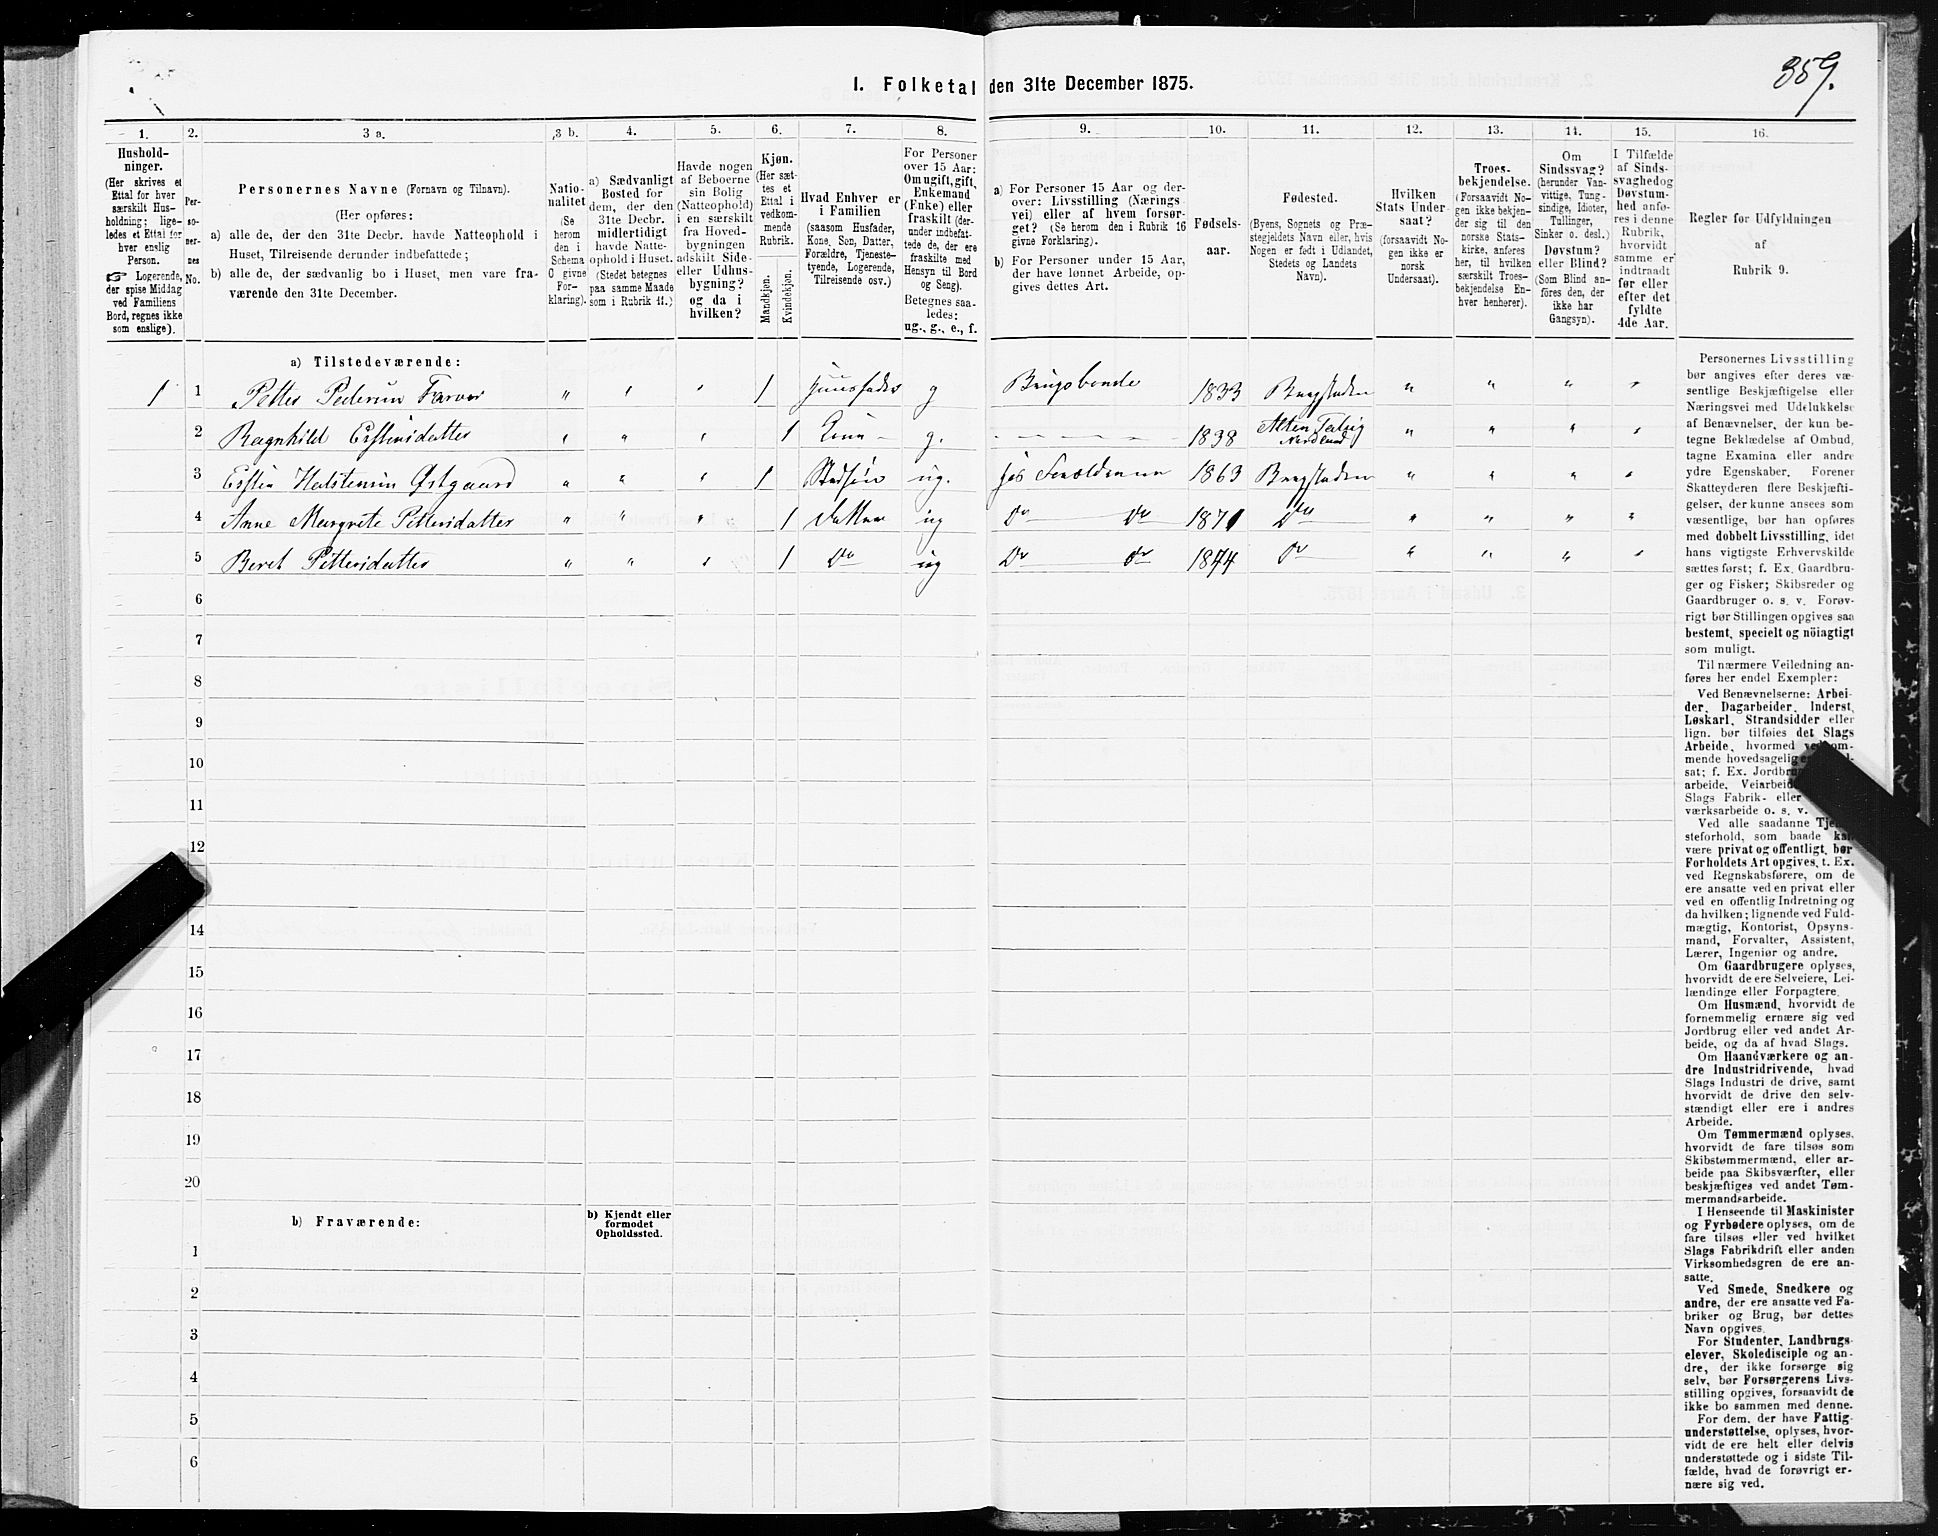 359.
I. Folketal den 31te December 1875.
1. 2. 3 a. 3 b. 4. 5. 6. 7. 8. 9. 10. 11. 12. 13. 14. 15. 16.
Hushold-
ninger.
(Her skrives et
Ettal for hver
særskilt Hus-
holdning; lige-
ledes et Ettal for
hver enslig
Person.
☞ Logerende,
der spise Middag
ved Familiens
Bord, regnes ikke
som enslige).
Per-
so-
ner-
nes
No.
Personernes Navne (Fornavn og Tilnavn).
(Her opføres:
a) alle de, der den 31te Decbr. havde Natteophold i
Huset, Tilreisende derunder indbefattede;
b) alle de, der sædvanlig bo i Huset, men vare fra-
værende den 31te December.
Natio-
nalitet
(Se
herom
den i
Schema
C givne
For-
klaring).
a) Sædvanligt
Bosted for
dem, der den
31te Decbr.
midlertidigt
havde Natte-
ophold i Huset.
(Stedet betegnes
paa samme Maade
som i Rubrik 11.)
Havde nogen
af Beboerne
sin Bolig
(Natteophold)
i en særskilt
fra Hoved-
bygningen
adskilt Side-
eller Udhus-
bygning?
og da i
hvilken?
Kjøn.
(Her sæt-
tes et
Ettal i
vedkom-
mende
Rubrik.
Mandkjøn.
Kvindekjøn.
Hvad Enhver er
i Familien
(saasom Husfader,
Kone, Søn, Datter,
Forældre, Tjeneste-
tyende, Logerende,
Tilreisende osv.)
For Personer
over 15 Aar:
Om ugift, gift,
Enkemand
(Enke) eller
fraskilt (der-
under indbefat-
tede de, der ere
fraskilte med
Hensyn til Bord
og Seng).
Betegnes saa-
ledes:
ug., g., e., f.
a) For Personer 15 Aar og der-
over: Livsstilling (Nærings-
vei) eller af hvem forsør-
get? (Se herom den i Rubrik 16
givne Forklaring).
b) For Personer under 15 Aar,
der have lønnet Arbeide, op-
gives dettes Art.
Fødsels-
aar.
Fødested.
(Byens, Sognets og Præ-
stegjeldets Navn eller, hvis
Nogen er født i Udlandet,
Stedets og Landets
Navn).
Hvilken
Stats Under-
saat?
(forsaavidt No-
gen ikke er
norsk
Undersaat).
Troes-
bekjendelse.
(Forsaavidt No-
gen ikke bekjen-
der sig til den
norske Stats-
kirke, anføres
her, til hvilken
særskilt Troes-
bekjendelse En-
hver henhører).
Om
Sindssvag?
(herunder Van-
vittige, Tung-
sindige, Idioter,
Tullinger,
Sinker o. desl.)
Døvstum?
eller Blind?
(Som Blind an-
føres den, der
ikke har
Gangsyn).
I Tilfælde
af Sinds-
svaghed og
Døvstum-
hed anfø-
res i denne
Rubrik,
hvorvidt
samme er
indtraadt
før eller
efter det
fyldte
4de Aar.
Regler før Udfyldningen
af
Rubrik 9.
a) Tilstedeværende:
1 1 Petter Pedersen " " " 1 Huusfader g Brugsbonde 1833 " " " "
2 Ragnhild " " " 1 Kone g. 1838 Alten Talvig Nordland " " " "
3 Estin Halstensen Østgaard " " " 1 Stedsøn ug. 1863 " " " "
4 Anne Margrete Pettersdatter " " " 1 datter ug Do Do 1871 Do " " " "
5 Beret Pettersdatter " " " 1 Do ug Do do 1874 Do " " " "
6
7
8
9
10
11
12
14
15
16
17
18
19
20
b) Fraværende:
b) Kjendt eller
formodet
Opholdssted.
1
2
3
4
5
6
Personernes Livsstilling
bør angives efter deres væ-
sentlige Beskjæftigelse eller
Næringsvei med Udelukkelse
af Benævnelser, der kun be-
tegne Beklædelse af Ombud,
tagne Examina eller andre
ydre Egenskaber. Forener
Skatteyderen flere Beskjæfti-
gelser, der kunne ansees som
væsentlige, bør han opføres
med dobbelt Livsstilling, idet
hans vigtigste Erhvervskilde
sættes først; f. Ex. Gaardbru-
ger og Fisker; Skibsreder og
Gaardbruger o. s. v. Forøv-
rigt bør Stillingen opgives saa
bestemt, specielt og nöiagtigt
som muligt.
Til nærmere Veiledning an-
føres her endel Exempler:
Ved Benævnelserne: Arbei-
der, Dagarbeider, Inderst,
Løskarl, Strandsidder eller
lign. bør tilføies det Slags
Arbeide, hvormed
mende hovedsagelig
sat; f. Ex.
arbeide,
Slags Fabrik- eller
værksarbeide o. s. v.
Ved alle saadanne
steforhold, som baade
være privat og offentligt, bør
Forholdets Art opgives, t. Ex.
ved Regnskabsførere, om de
ere ansatte ved en privat eller
ved en offentlig Indretning og
da hvilken; lignende ved Fuld-
mægtig, Kontorist, Opsyns-
mand, Forvalter, Assistent,
Lærer, Ingeniør og andre.
Om Gaardbrugere oplyses,
hvorvidt de ere Selveiere, Lei-
lændinge eller Forpagtere.
Om Husmænd, hvorvidt de
fornemmelig ernære sig ved
Jordbrug eller ved andet Ar-
beide, og da af hvad Slags.
Om Haandværkere og an-
dre Industridrivende, hvad
Slags Industri de drive, samt
hvorvidt de drive den selv-
stændigt eller ere i andres
Arbeide.
Om Tømmermænd oplyses,
hvorvidt de fare tilsøs som
Skibstømmermænd, eller ar-
beide paa Skibsværfter, eller
beskjæftiges ved andet Tøm-
mermandsarbeide.
I Henseende til Maskinister
og Fyrbødere oplyses, om de
fare tilsøs eller ved hvilket
Slags Fabrikdrift eller anden
Virksomhedsgren de ere an-
satte.
Ved Smede, Snedkere og
andre, der ere ansatte ved Fa-
briker og Brug, bør dettes
Navn opgives.
For Studenter, Landbrugs-
elever, Skoledisciple og an-
dre, der ikke forsørge sig
selv, bør Forsørgerens Livs-
stilling opgives, forsaavidt de
ikke bo sammen med denne.
For dem, der have Fattig-
understøttelse, oplyses, hvor-
vidt de ere helt eller delvis
understøttede og i sidste Til-
fælde, hvad de forøvrigt er-
nære sig ved.